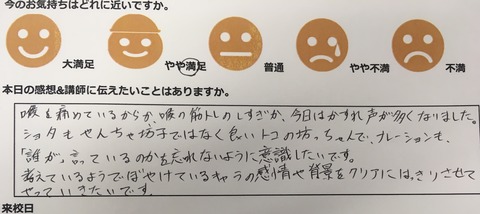 今のお気持ちはどれに近いですか。
大満足 やや満足 普通 やや不満 不満
本日の感想&講師に伝えたいことはありますか。
喉を痛めているからか、喉の筋トレのしすぎか、今日はかすれ声が多くなりました。
ショタもやんちゃ坊子ではなく良いトコの坊っちゃんで、ナレーションも、
「誰が」言っているのかを忘れないように意識したいです。
考えているようでぼやけているキャラの感情や背景をクリアにはっきりさせて
やっていきたいです。
来校日